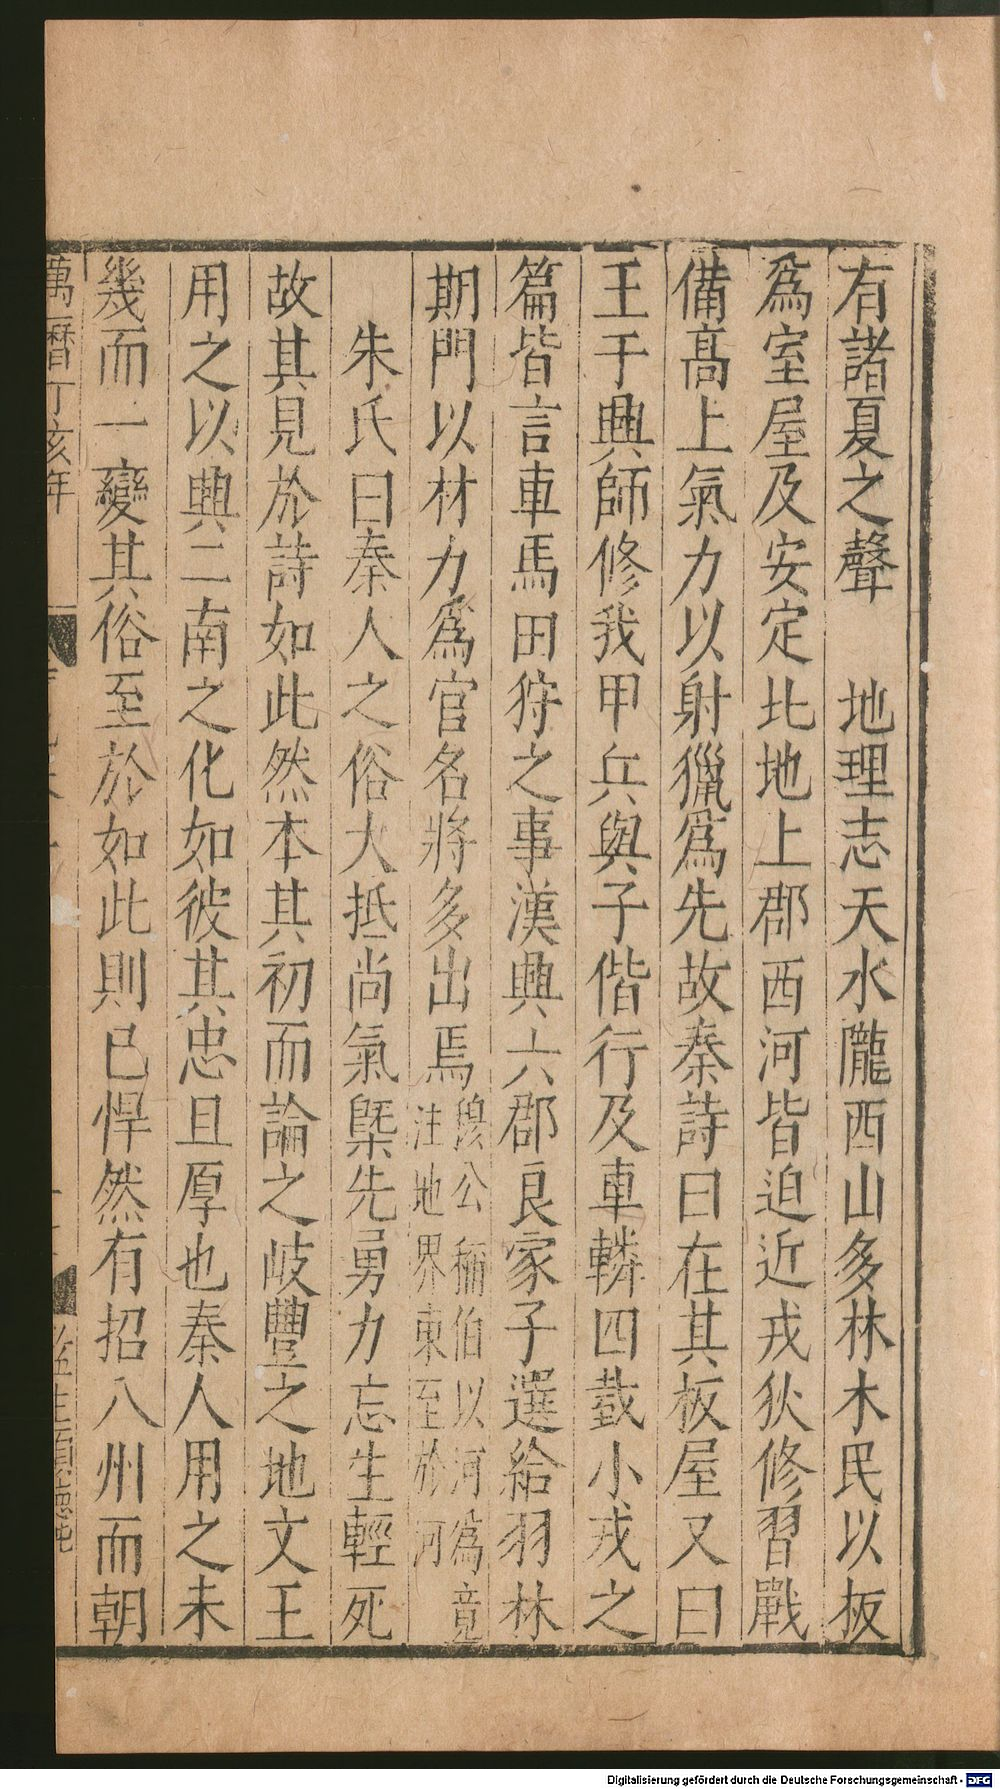 有諸夏之聲　地理志天水隴西山多林木民以板
爲室屋及安定北地上郡西河皆迫近戎狄修習戰
備高上氣力以射獵爲先故秦詩曰在其板屋又曰
王于興師修我甲兵與子偕行及車轔四臷小戎之
篇皆言車馬田狩之事漢興六郡良家子選給羽林
期門以材力爲官名將多出焉
穆公稱伯以河爲竟
注地界東至於河
朱氏曰秦人之俗大抵尚氣槩先勇力忘生輕死
故其見於詩如此然本其初而論之岐豐之地文王
用之以興二南之化如彼其忠且厚也秦人用之未
幾而一變其俗至於如此則已悍然有招八州而朝
萬曆丁亥年
Digitalisierung gefördert durch die Deutsche Forschungsgemeinschaft - DFG